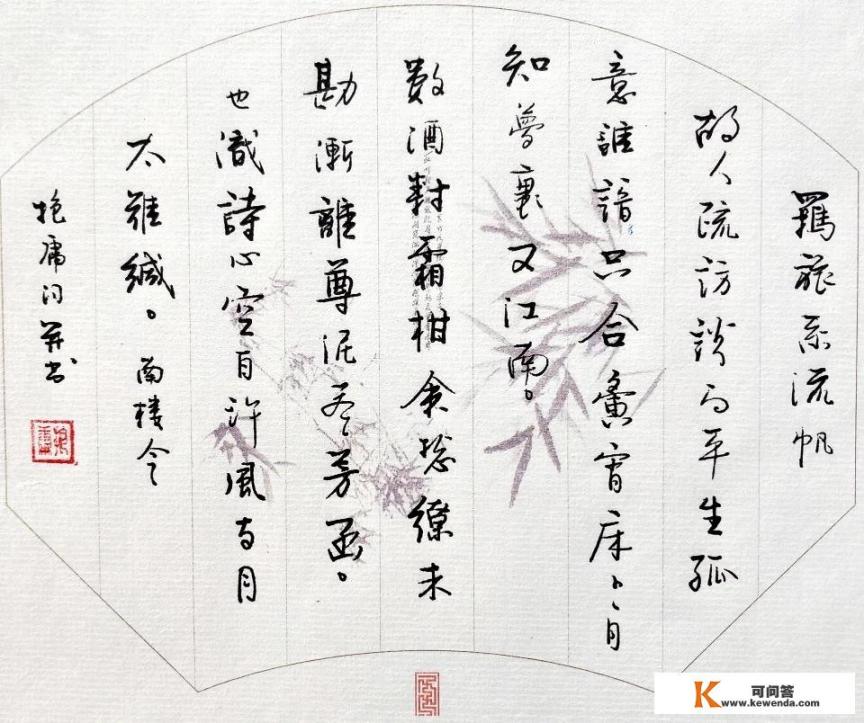 羈旅系流帆
故人疏訪談 平生孤
意誰諳只合 宵床
知夢裏又江南。
數酒對霜柑 愁繚未
勘漸離尊泥 芳函。
也識詩心空自許風与月
太難緘。南樓令
抱庸词并书
可问答
www.kewenda.com